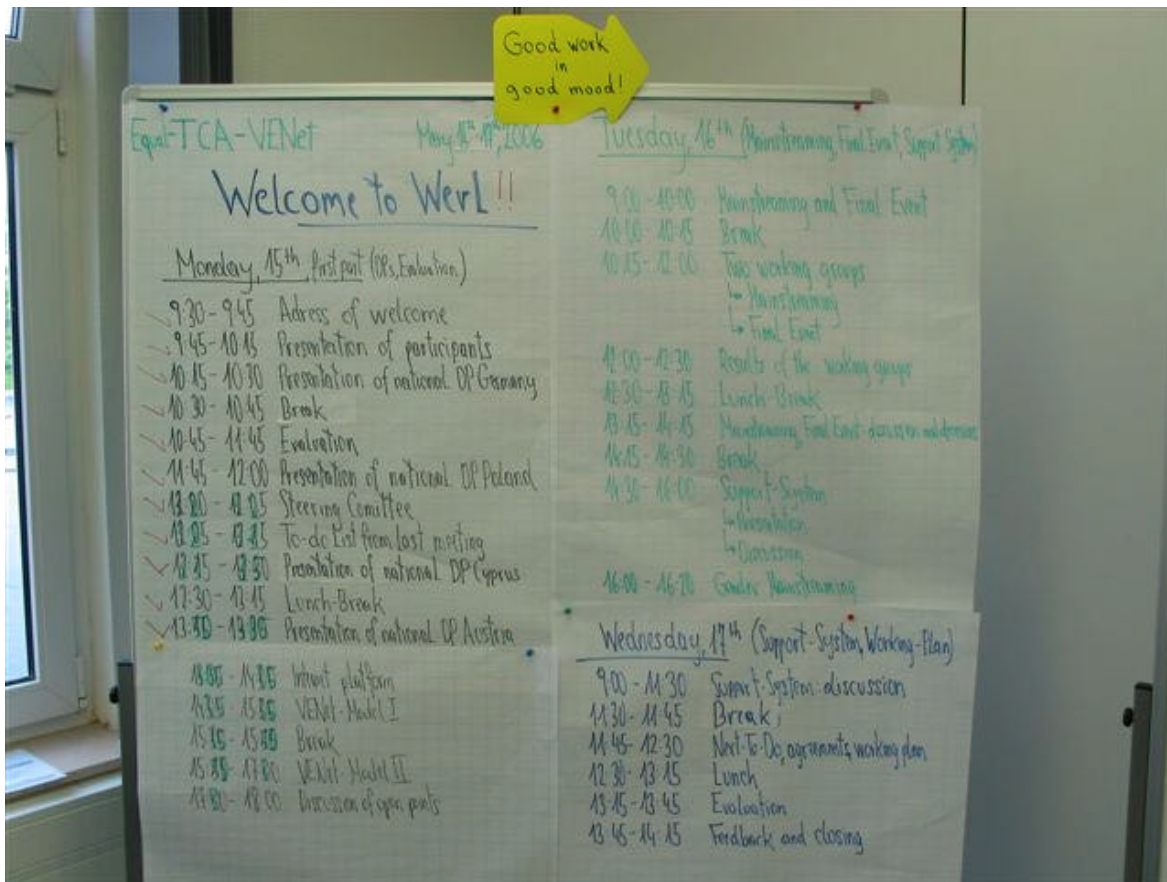 Good work
in
good mood!
Equal-TCA-VENet May, 15th-17th, 2006
Welcome to Werl!!
Monday, 15th, first part (DPs, Evaluation)
9:30 - 9:45 Adress of welcome
9:45 - 10:15 Presentation of participants
10:15 - 10:30 Presentation of national DP Germany
10:30 - 10:45 Break
10:45 - 11:45 Evaluation
11:45 - 12:00 Presentation of national DP Poland
Steering Comittee
To-do List from last meeting
Presentation of national DP Cyprus
12:30 - 13:15 Lunch-Break
Presentation of national DP Austria
platform
VENet-Model I
Break
VENet-Model II
18:00 Discussion of open points
Tuesday, 16th (Mainstreaming, Final Event, Support System)
9:00 - 10:00 Mainstreaming and Final Event
10:00 - 10:15 Break
10:15 - 12:00 Two working groups
↳ Mainstreaming
↳ Final Event
12:00 - 12:30 Results of the working groups
12:30 - 13:15 Lunch-Break
13:15 - 14:15 Mainstreaming, Final Event-discussion and
14:15 - 14:30 Break
14:30 - 16:00 Support-System
↳ Presentation
↳ Discussion
16:00 - 16:20 Gender Mainstreaming
Wednesday, 17th (Support-System, Working-Plan)
9:00 - 11:30 Support-System: discussion
11:30 - 11:45 Break
11:45 - 12:30 Next To-Do, agreements, working plan
12:30 - 13:15 Lunch
13:15 - 13:45 Evaluation
13:45 - 14:15 Feedback and closing